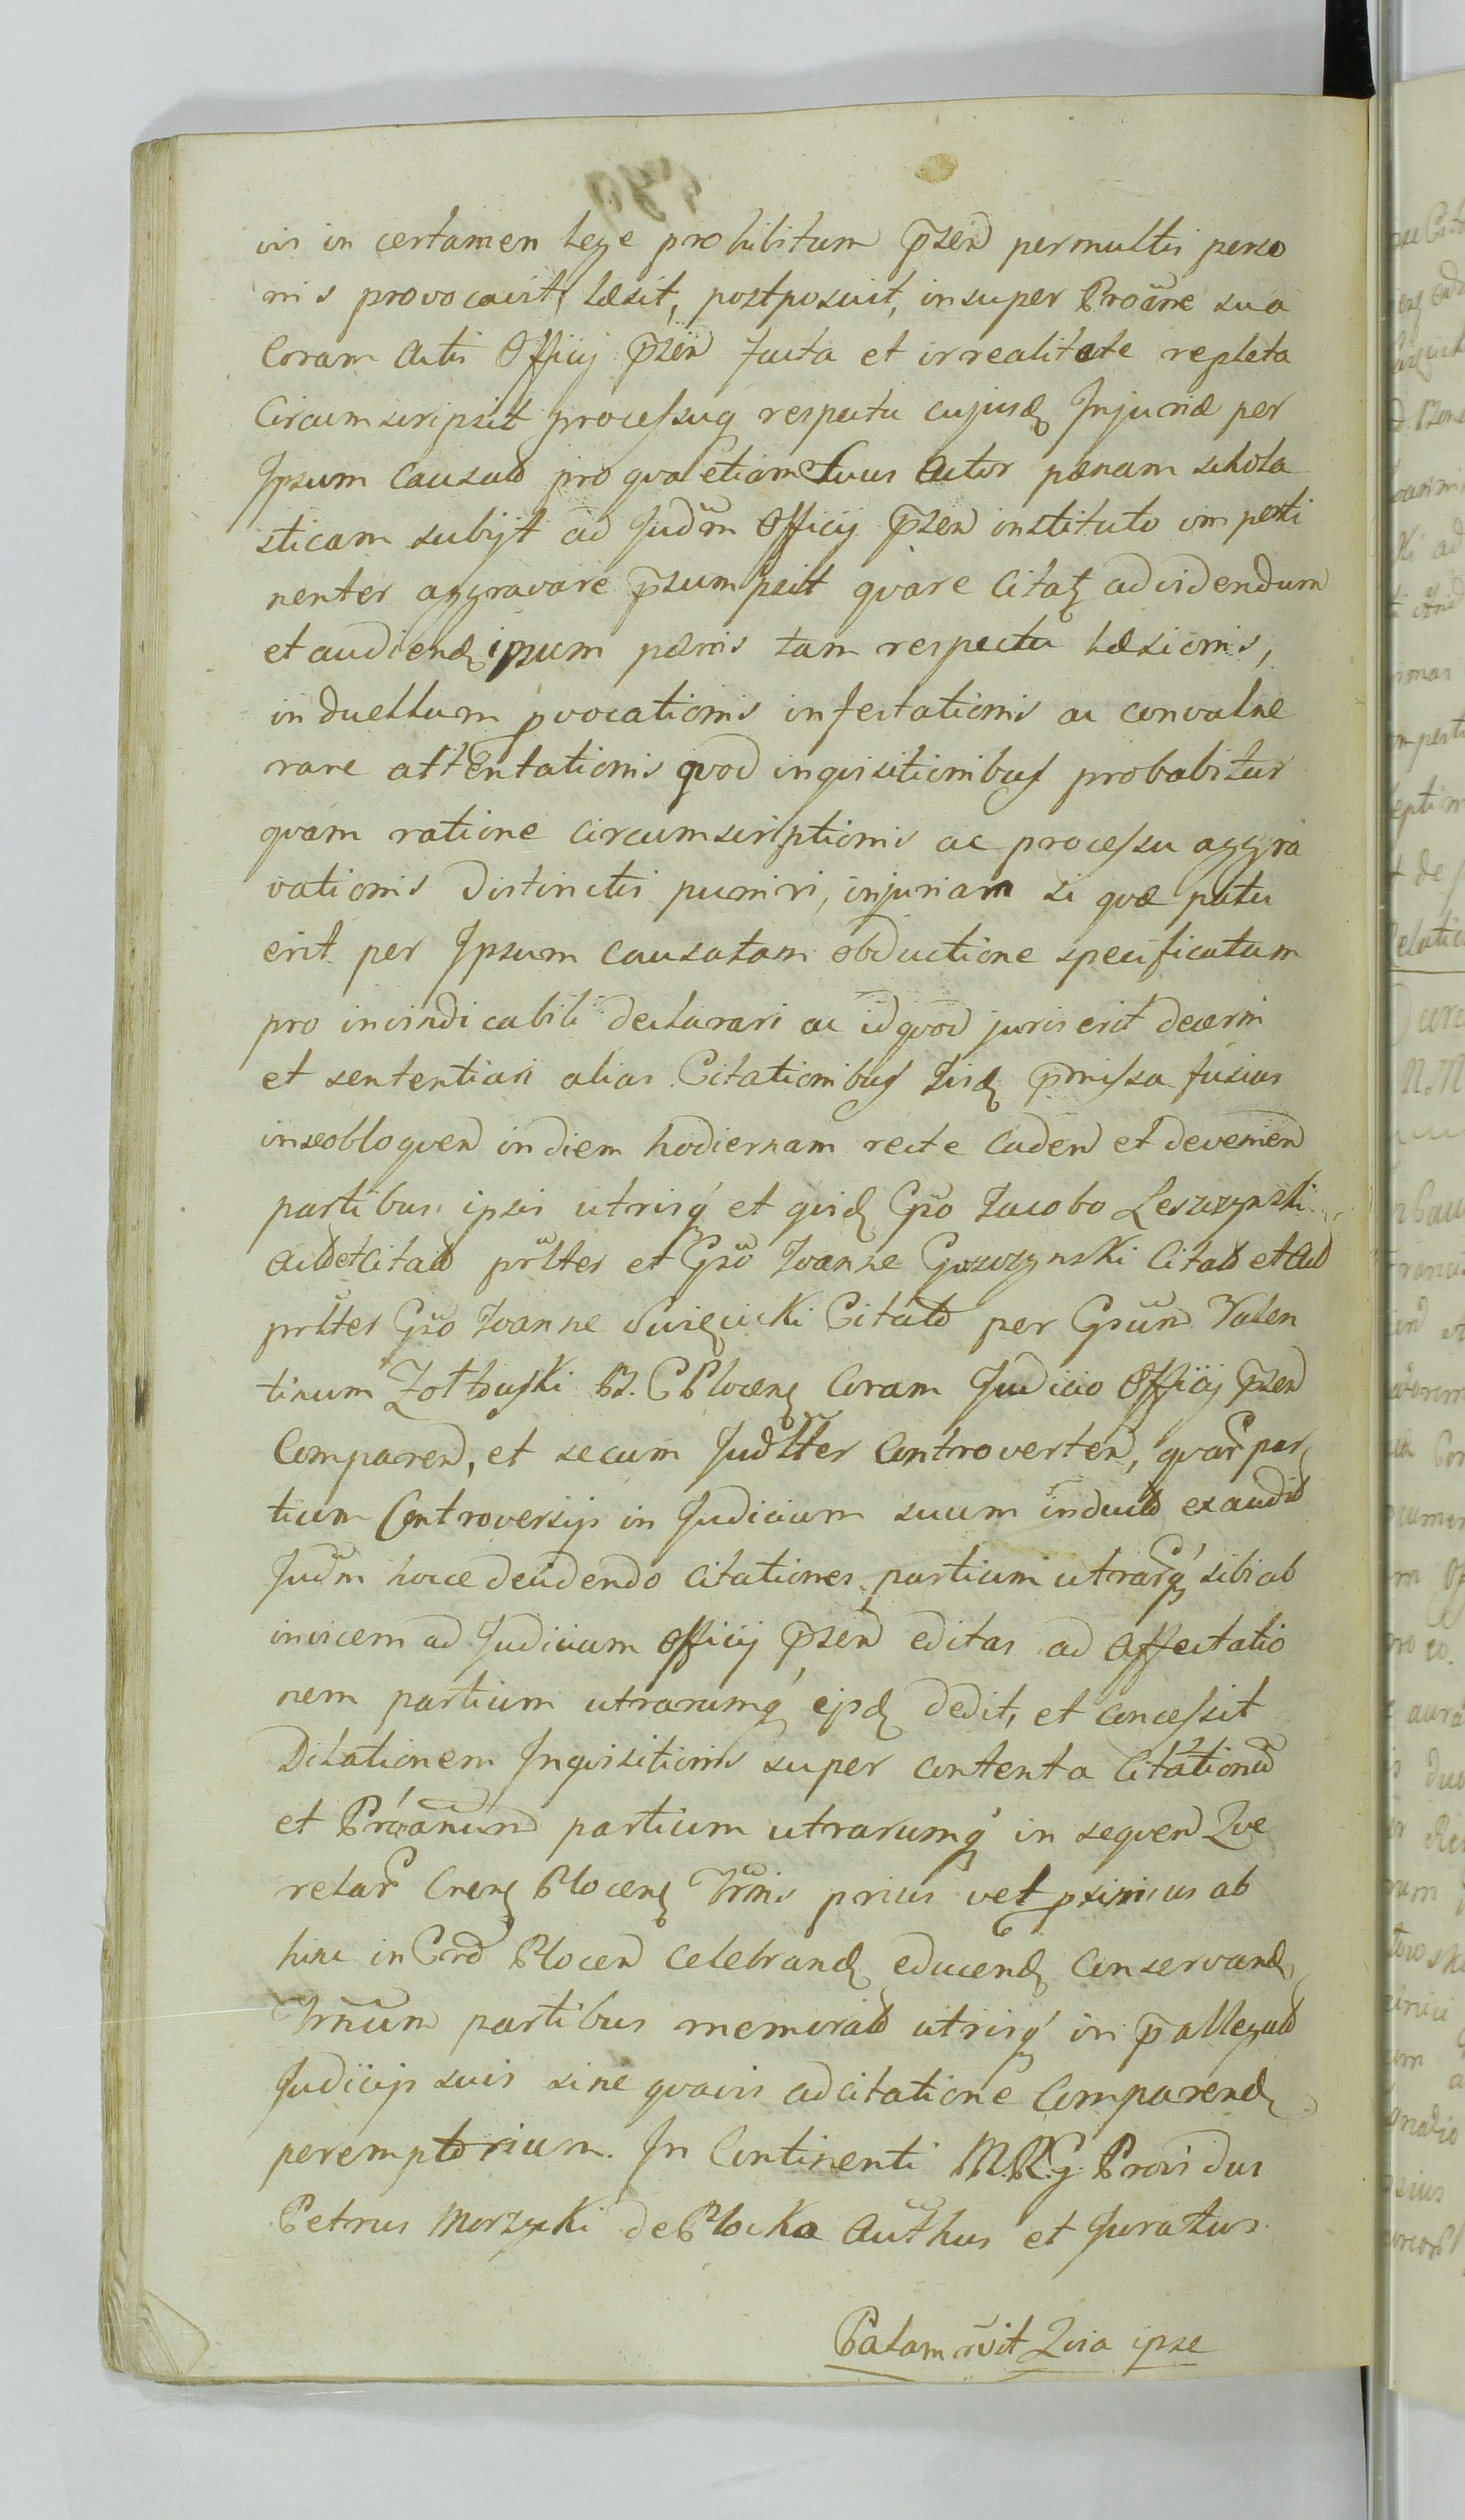 vis in certamen lege prohibitum p̄sen̄d permultis perso
nis provocavit, læsit, postposuit, insuper Pro͞ane sua
Coram Actis Officij p̄sen̄d facta et irrealitate repleta
Circumscripsit processuq respectu cujusd Injuriæ per
Ipsum Causatd pro qva etiam suus Actor pænam schola
sticam subijt ad Jud̄m Officij p̄sen̄d instituto imperti
nenter aggravare p̄sumpsit qvare Citatq ad videndum
et audiend ipsum pænis tam respectu Læsionis,
in duellum pvocationis infestationis ac convulne
rare attentationis qvod inqvisitionibus probabitur
qvam ratione circumscriptionis ac processu aggra
vationis distinctis puniri, injuriam si qvæ patu
erit per Ipsum causatam obductione specificatam
pro invindicabili declarari ac id qvod juris erit decerni
et sententiari alias Citationibus Iisd p̄missa fusius
in se obloqvend in diem hodiernam recte cadend et deveniend
partibus ipsis utrisq et qvid Gso Jacobo Leszczynski
Act et Citatd prlter et Gso Joanne Goszczynski Citatd et Act
prlter Gso Joanne Święcicki Citatd per Gsum Valen
tinum Zołtowski B. C Plocens Coram Judicio Officij p̄send
Comparend, et secum Judlter Controvertend, qvar par
tium Controversijs in Judicium suum inductd exauditd
Judm hocce decidendo Citationes partium utrarq sibi ab
invicem ad Judicium Officij p̄send editas ad Affectatio
nem partium utrarumq ejsd dedit, et Concessit
Dilationem Inqvisitionis super contenta Citationū
et Pro͞anum partium utrarumq in seqvend Qve
relar Crens Plocens Trmis prius vel pximius ab
hinc in Crd Plocend Celebrand educend Conservand
Trnum partibus memoratd utrisq in p̄allegatd
Judicijs suis sine qvavis adcitatione Comparend
peremptorium. In Continenti M.R.g. Providus
Petrus Morzycki de Plocka Authus et Juratus
Palam rvit Qvia ipse